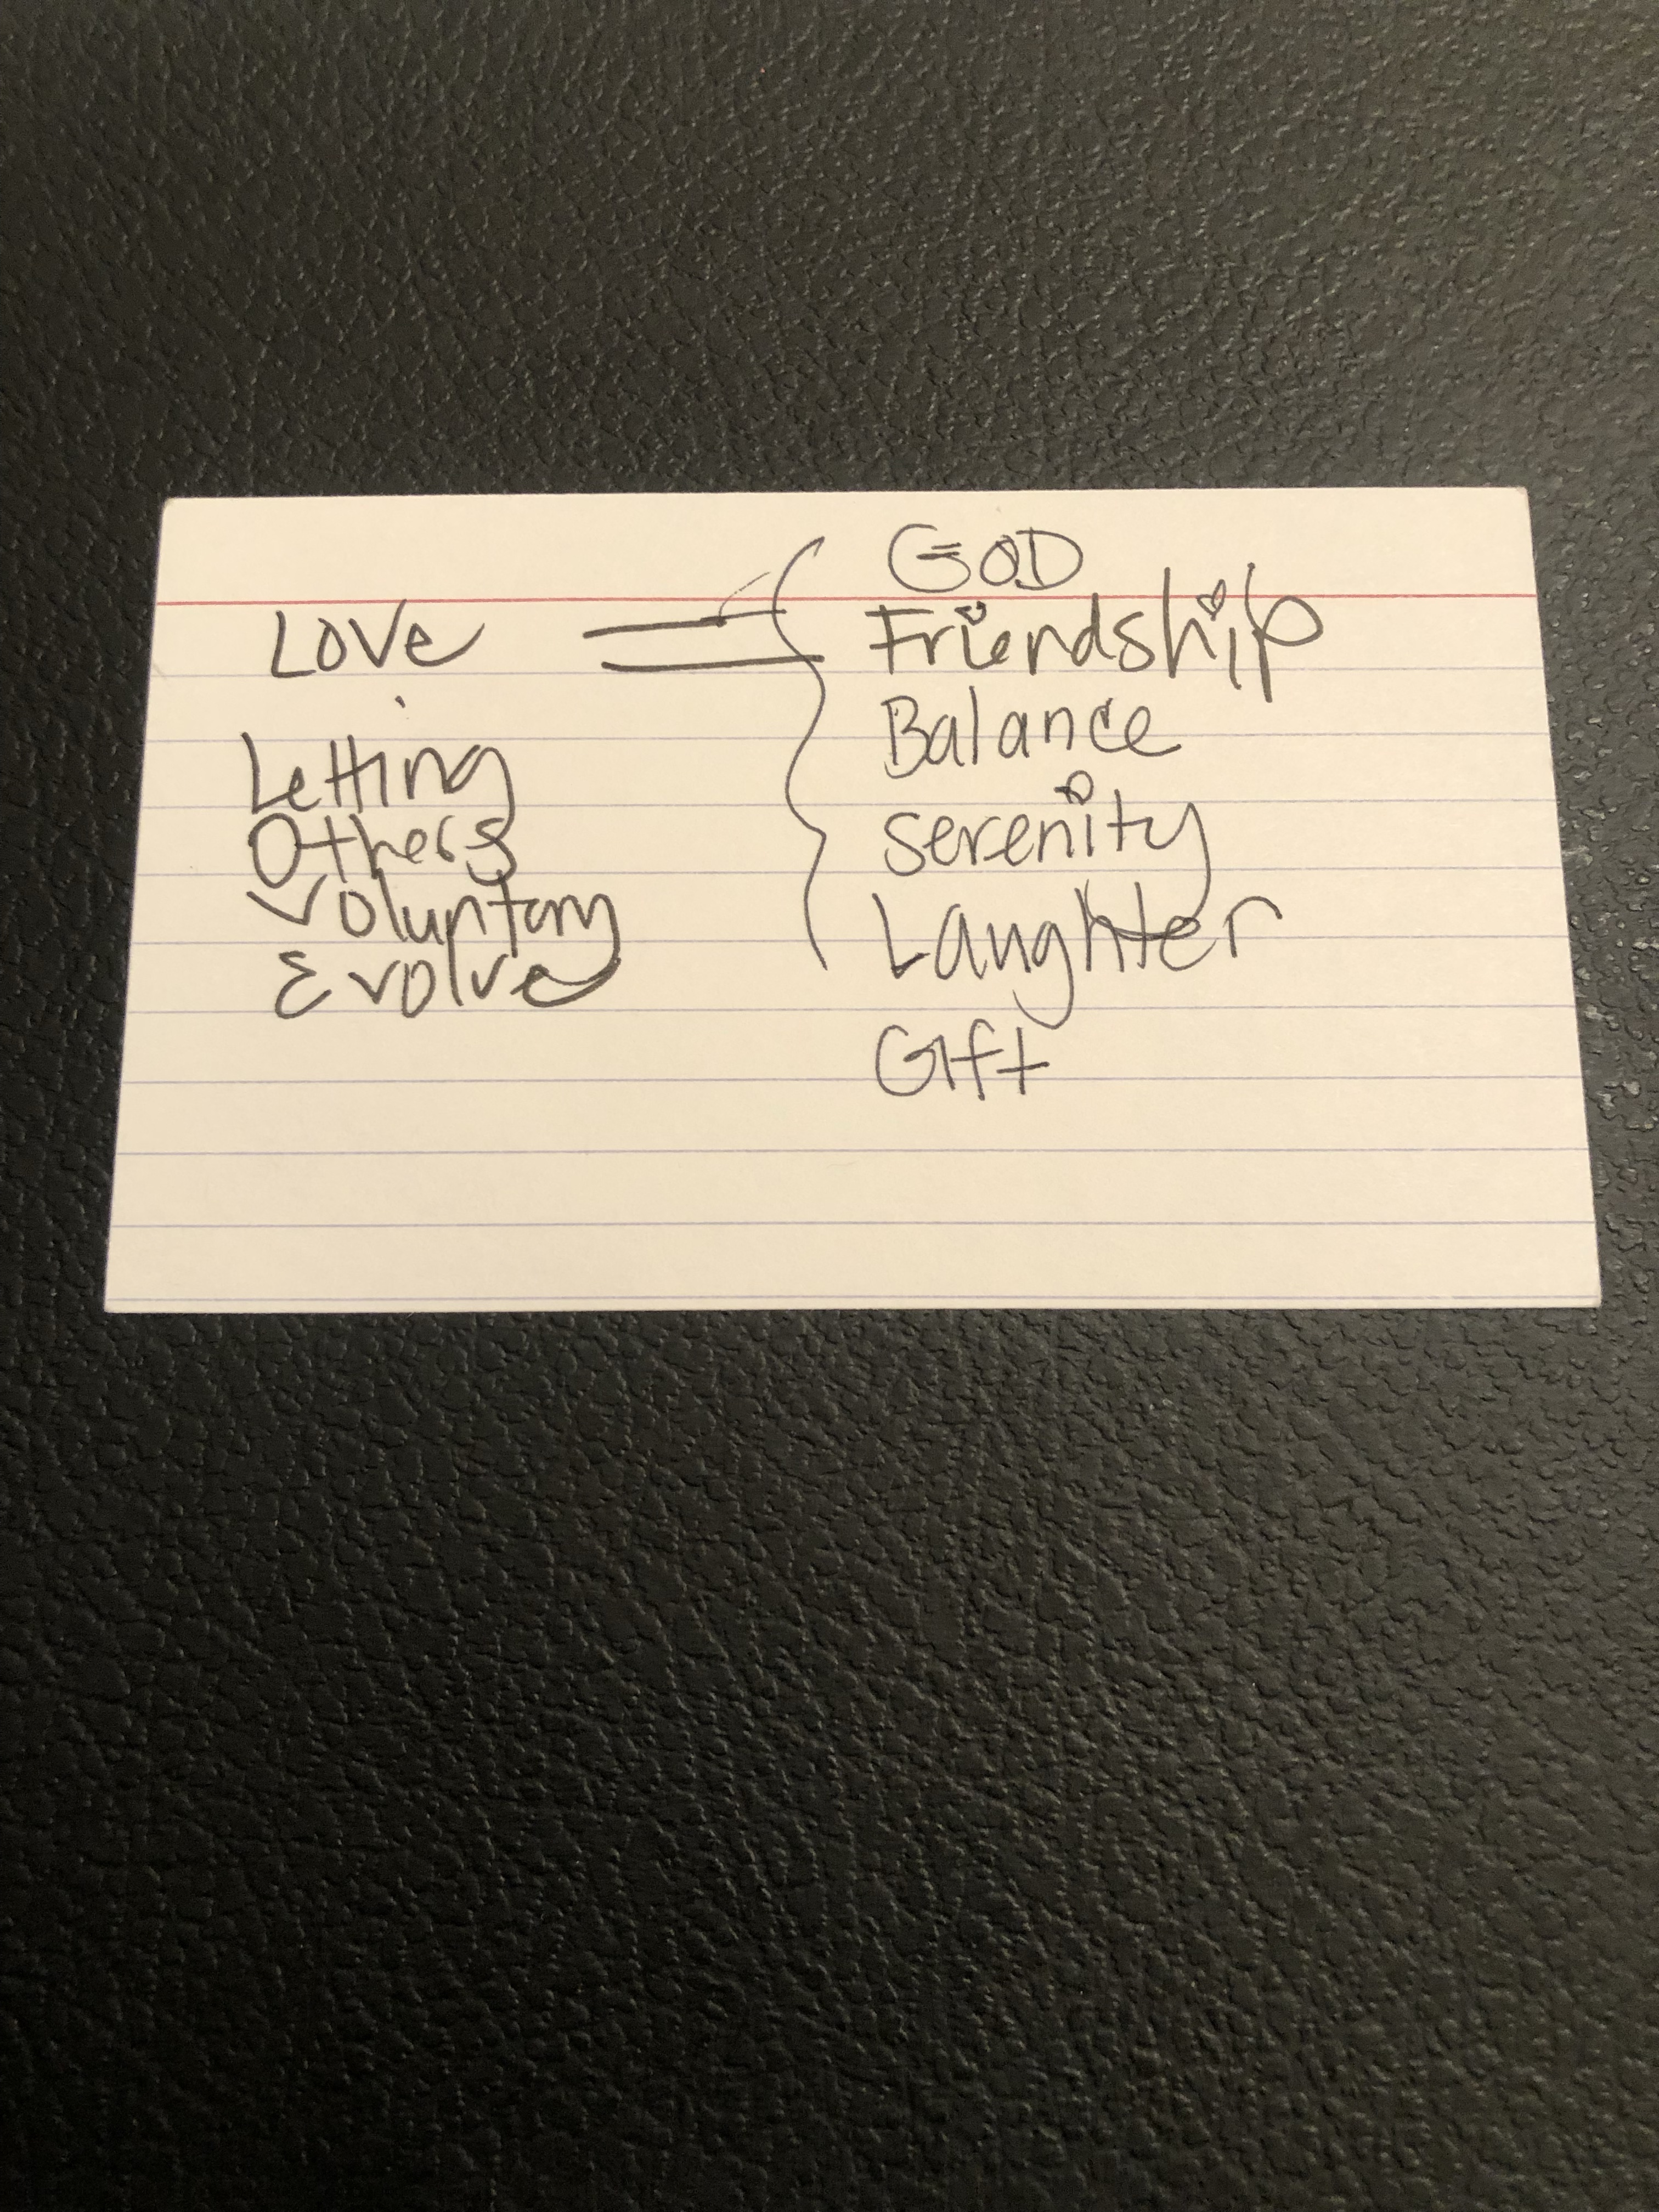 Love =
Letting
Others
Voluntary
Evolve
{ GOD
Friendship
Balance
Serenity
Laughter
Gift